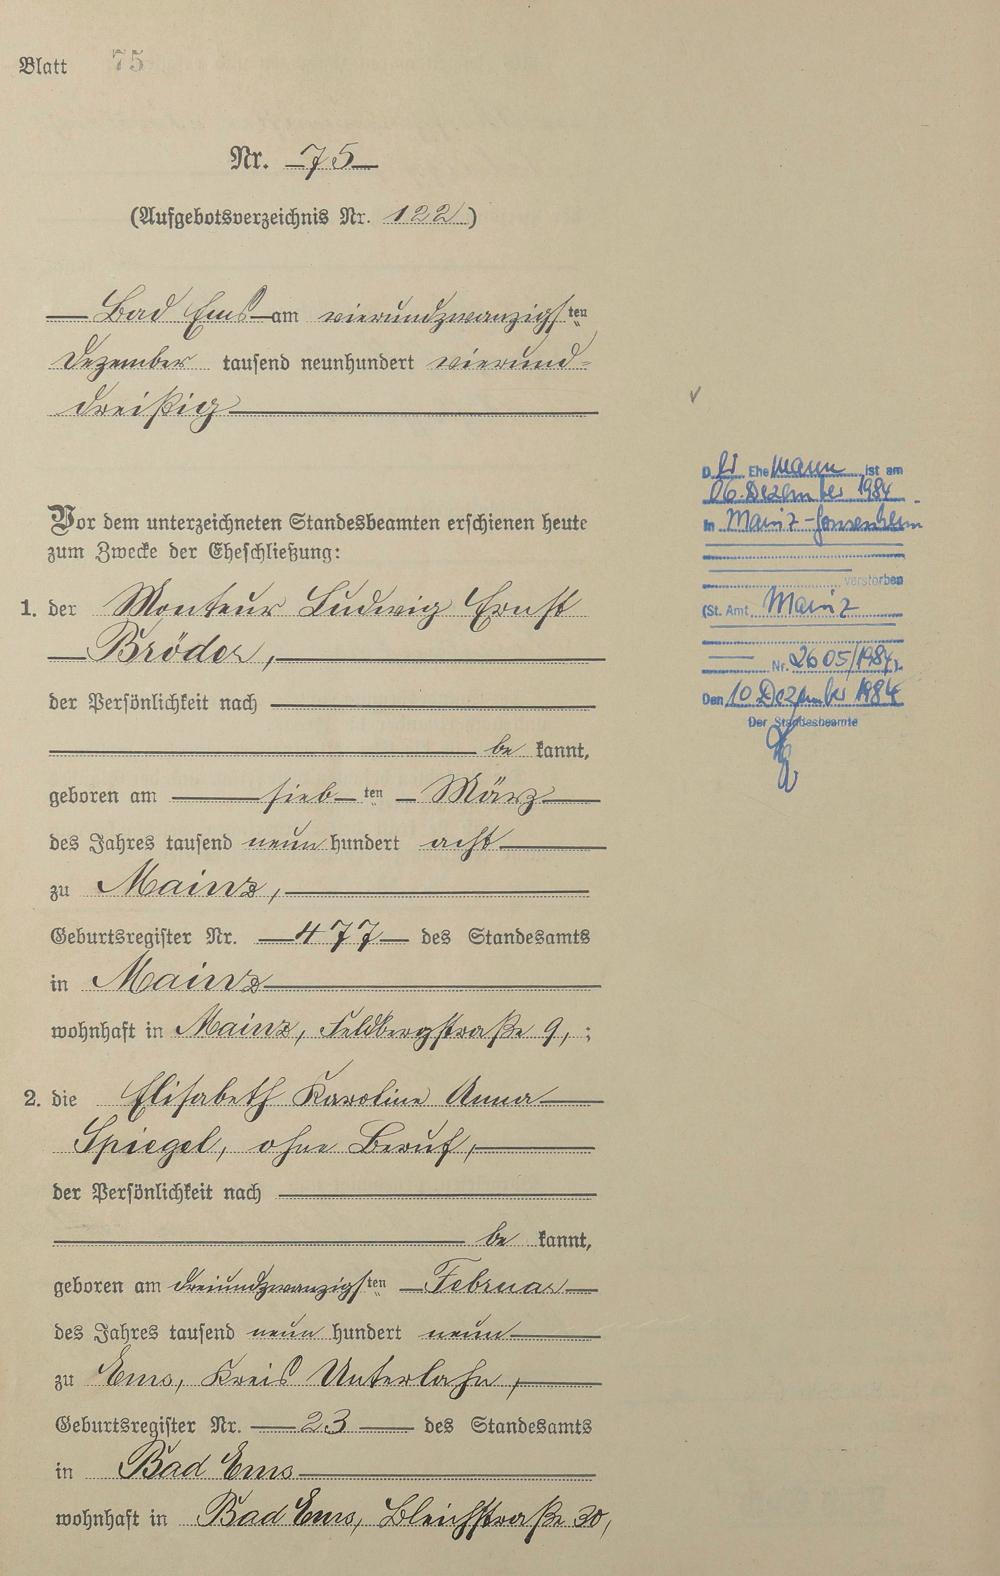 Blatt 75
Nr. 75
(Aufgebotsverzeichnis Nr. 122)
Bad Ems am vierundzwanzigsten
Dezember tausend neunhundert vierund-
dreißig
Vor dem unterzeichneten Standesbeamten erschienen heute
zum Zwecke der Eheschließung:
1. der Monteur Ludwig Ernst
Bröder,
der Persönlichkeit nach
be kannt,
geboren am siebten März
des Jahres tausend neun hundert acht
zu Mainz,
Geburtsregister Nr. 477 des Standesamts
in Mainz
wohnhaft in Mainz, Feldbergstraße 9, ;
2. die Elisabeth Karoline Anna
Spiegel, ohne Beruf,
der Persönlichkeit nach
be kannt,
geboren am dreiundzwanzigsten Februar
des Jahres tausend neun hundert neun
zu Ems, Kreis Unterlahn,
Geburtsregister Nr. 23 des Standesamts
in Bad Ems
wohnhaft in Bad Ems, Bleichstraße 30,
Der Ehemann ist am
06. Dezember 1984
in Mainz-Gonsenheim
verstorben
(St. Amt Mainz
Nr. 2605/1984).
Den 10 Dezember 1984
Der Standesbeamte